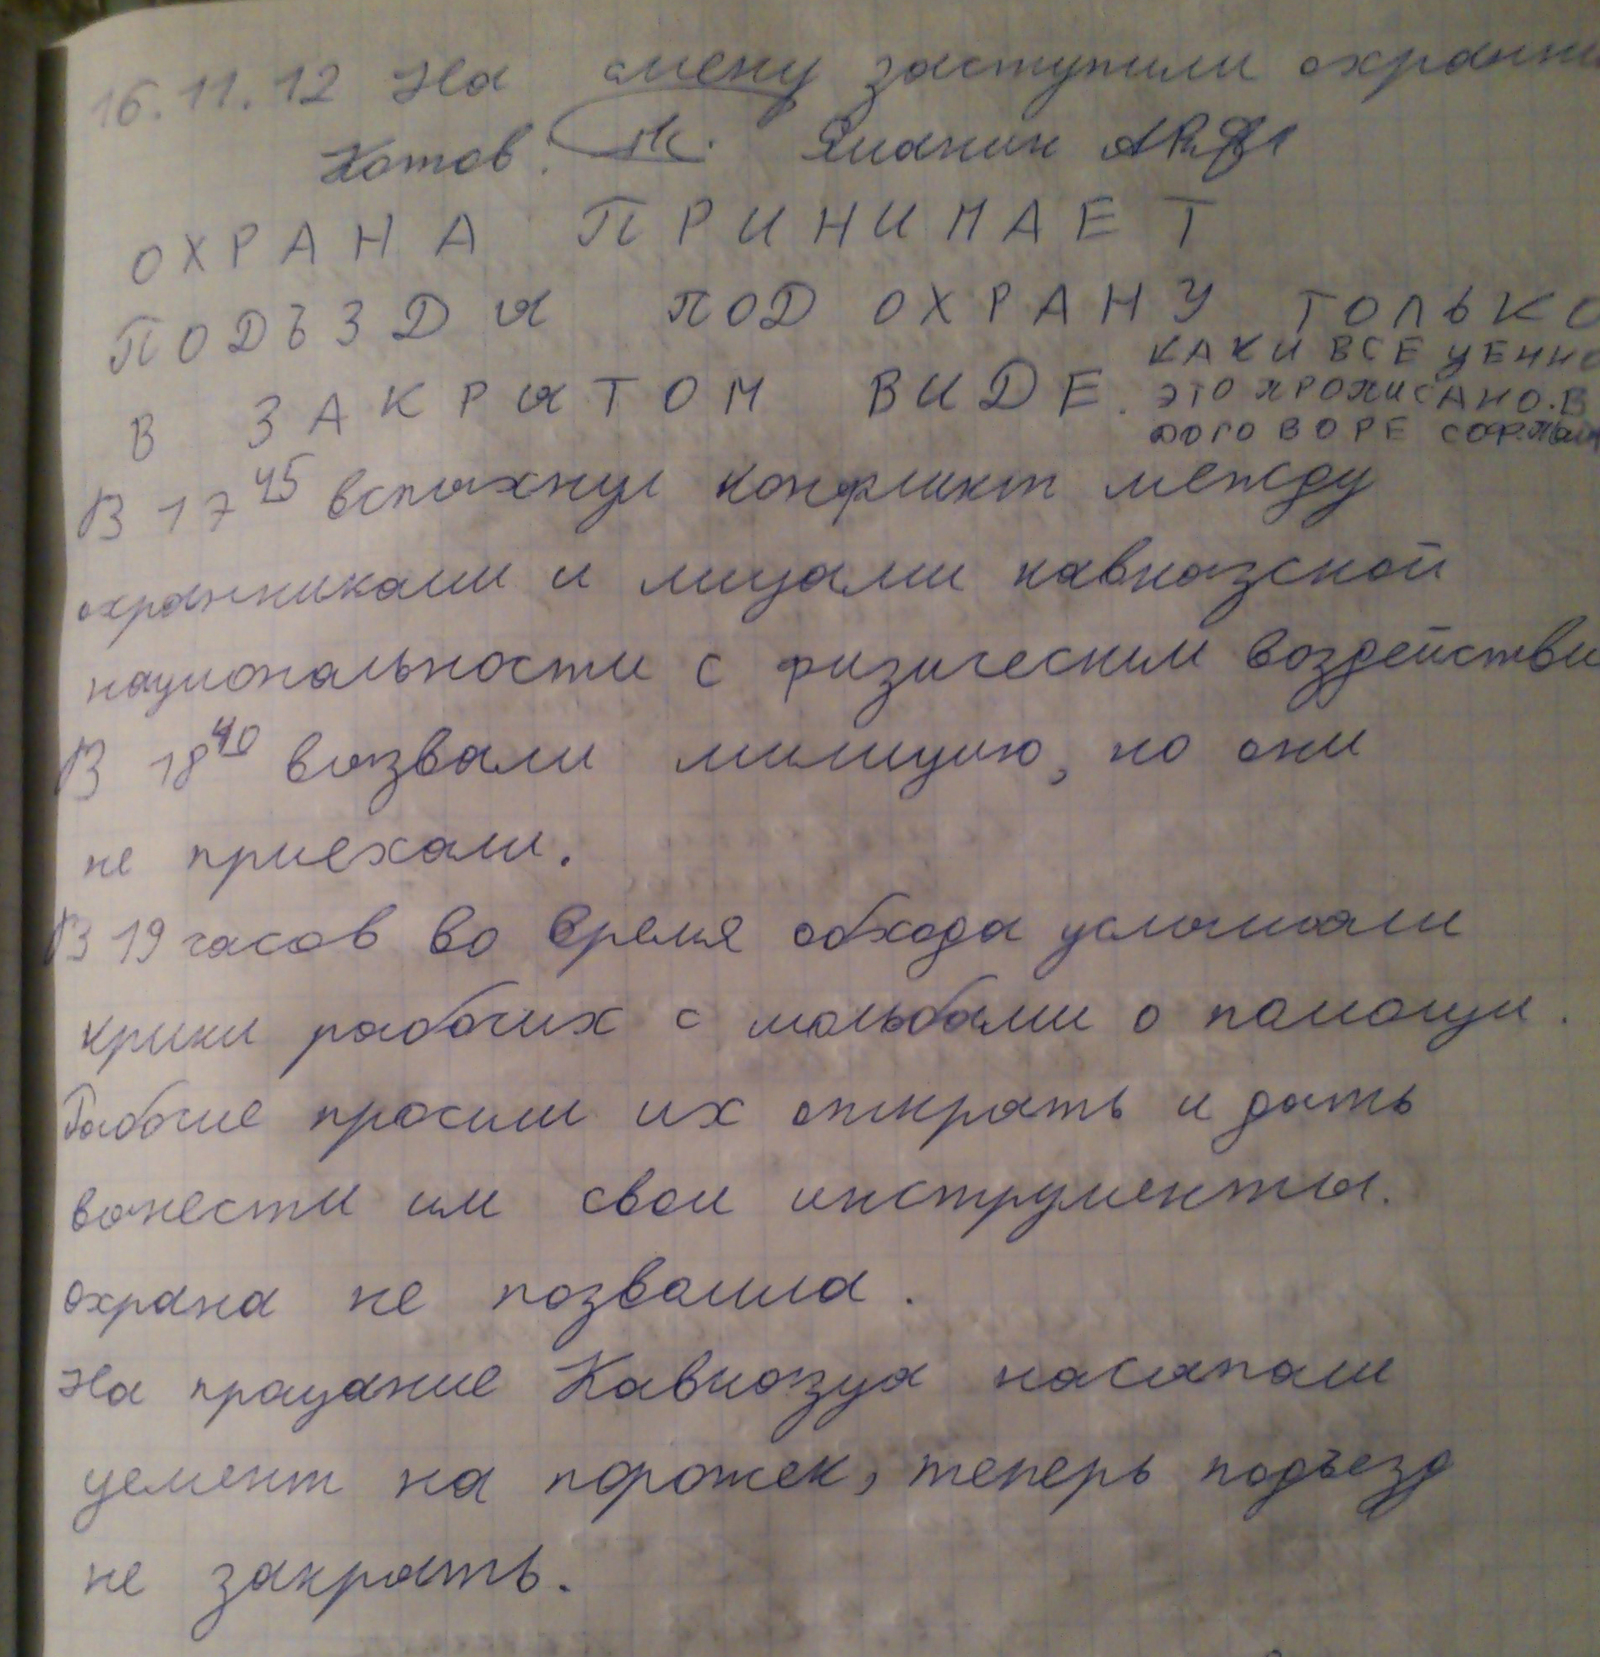 16.11.12 На смену заступили охранни
Хотов. Яманин
ОХРАНА ПРИНИМАЕТ
ПОДЪЗДЫ ПОД ОХРАНУ ТОЛЬКО
В ЗАКРЫТОМ ВИДЕ.
КАК И ВСЕ ЦЕННО
ЭТО ПРОПИСАНО.В
ДОГОВОРЕ
В 17 45 вспыхнул конфликт между
охранниками и лицами кавказской
национальности с физическим воздействи
В 18 40 вызвали милицию, но они
не приехали.
В 19 часов во время обхода услышали
крики рабочих с мольбами о помощи.
Рабочие просили их открыть и дать
вынести им свои инструменты.
охрана не позволила.
На прощание Кавказцы насыпали
цемент на порожек, теперь подъезд
не закрыть.